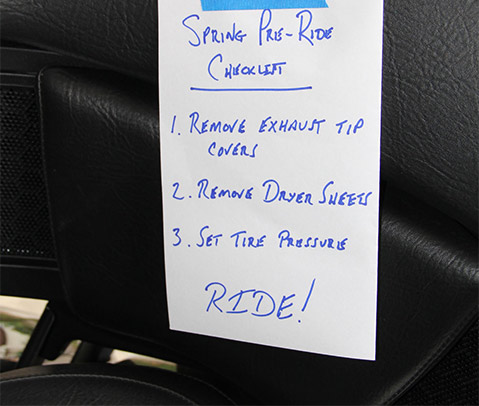 SPRING PRE-RIDE
CHECKLIST
1. REMOVE EXHAUST TIP
COVERS
2. REMOVE DRYER SHEETS
3. SET TIRE PRESSURE
RIDE!